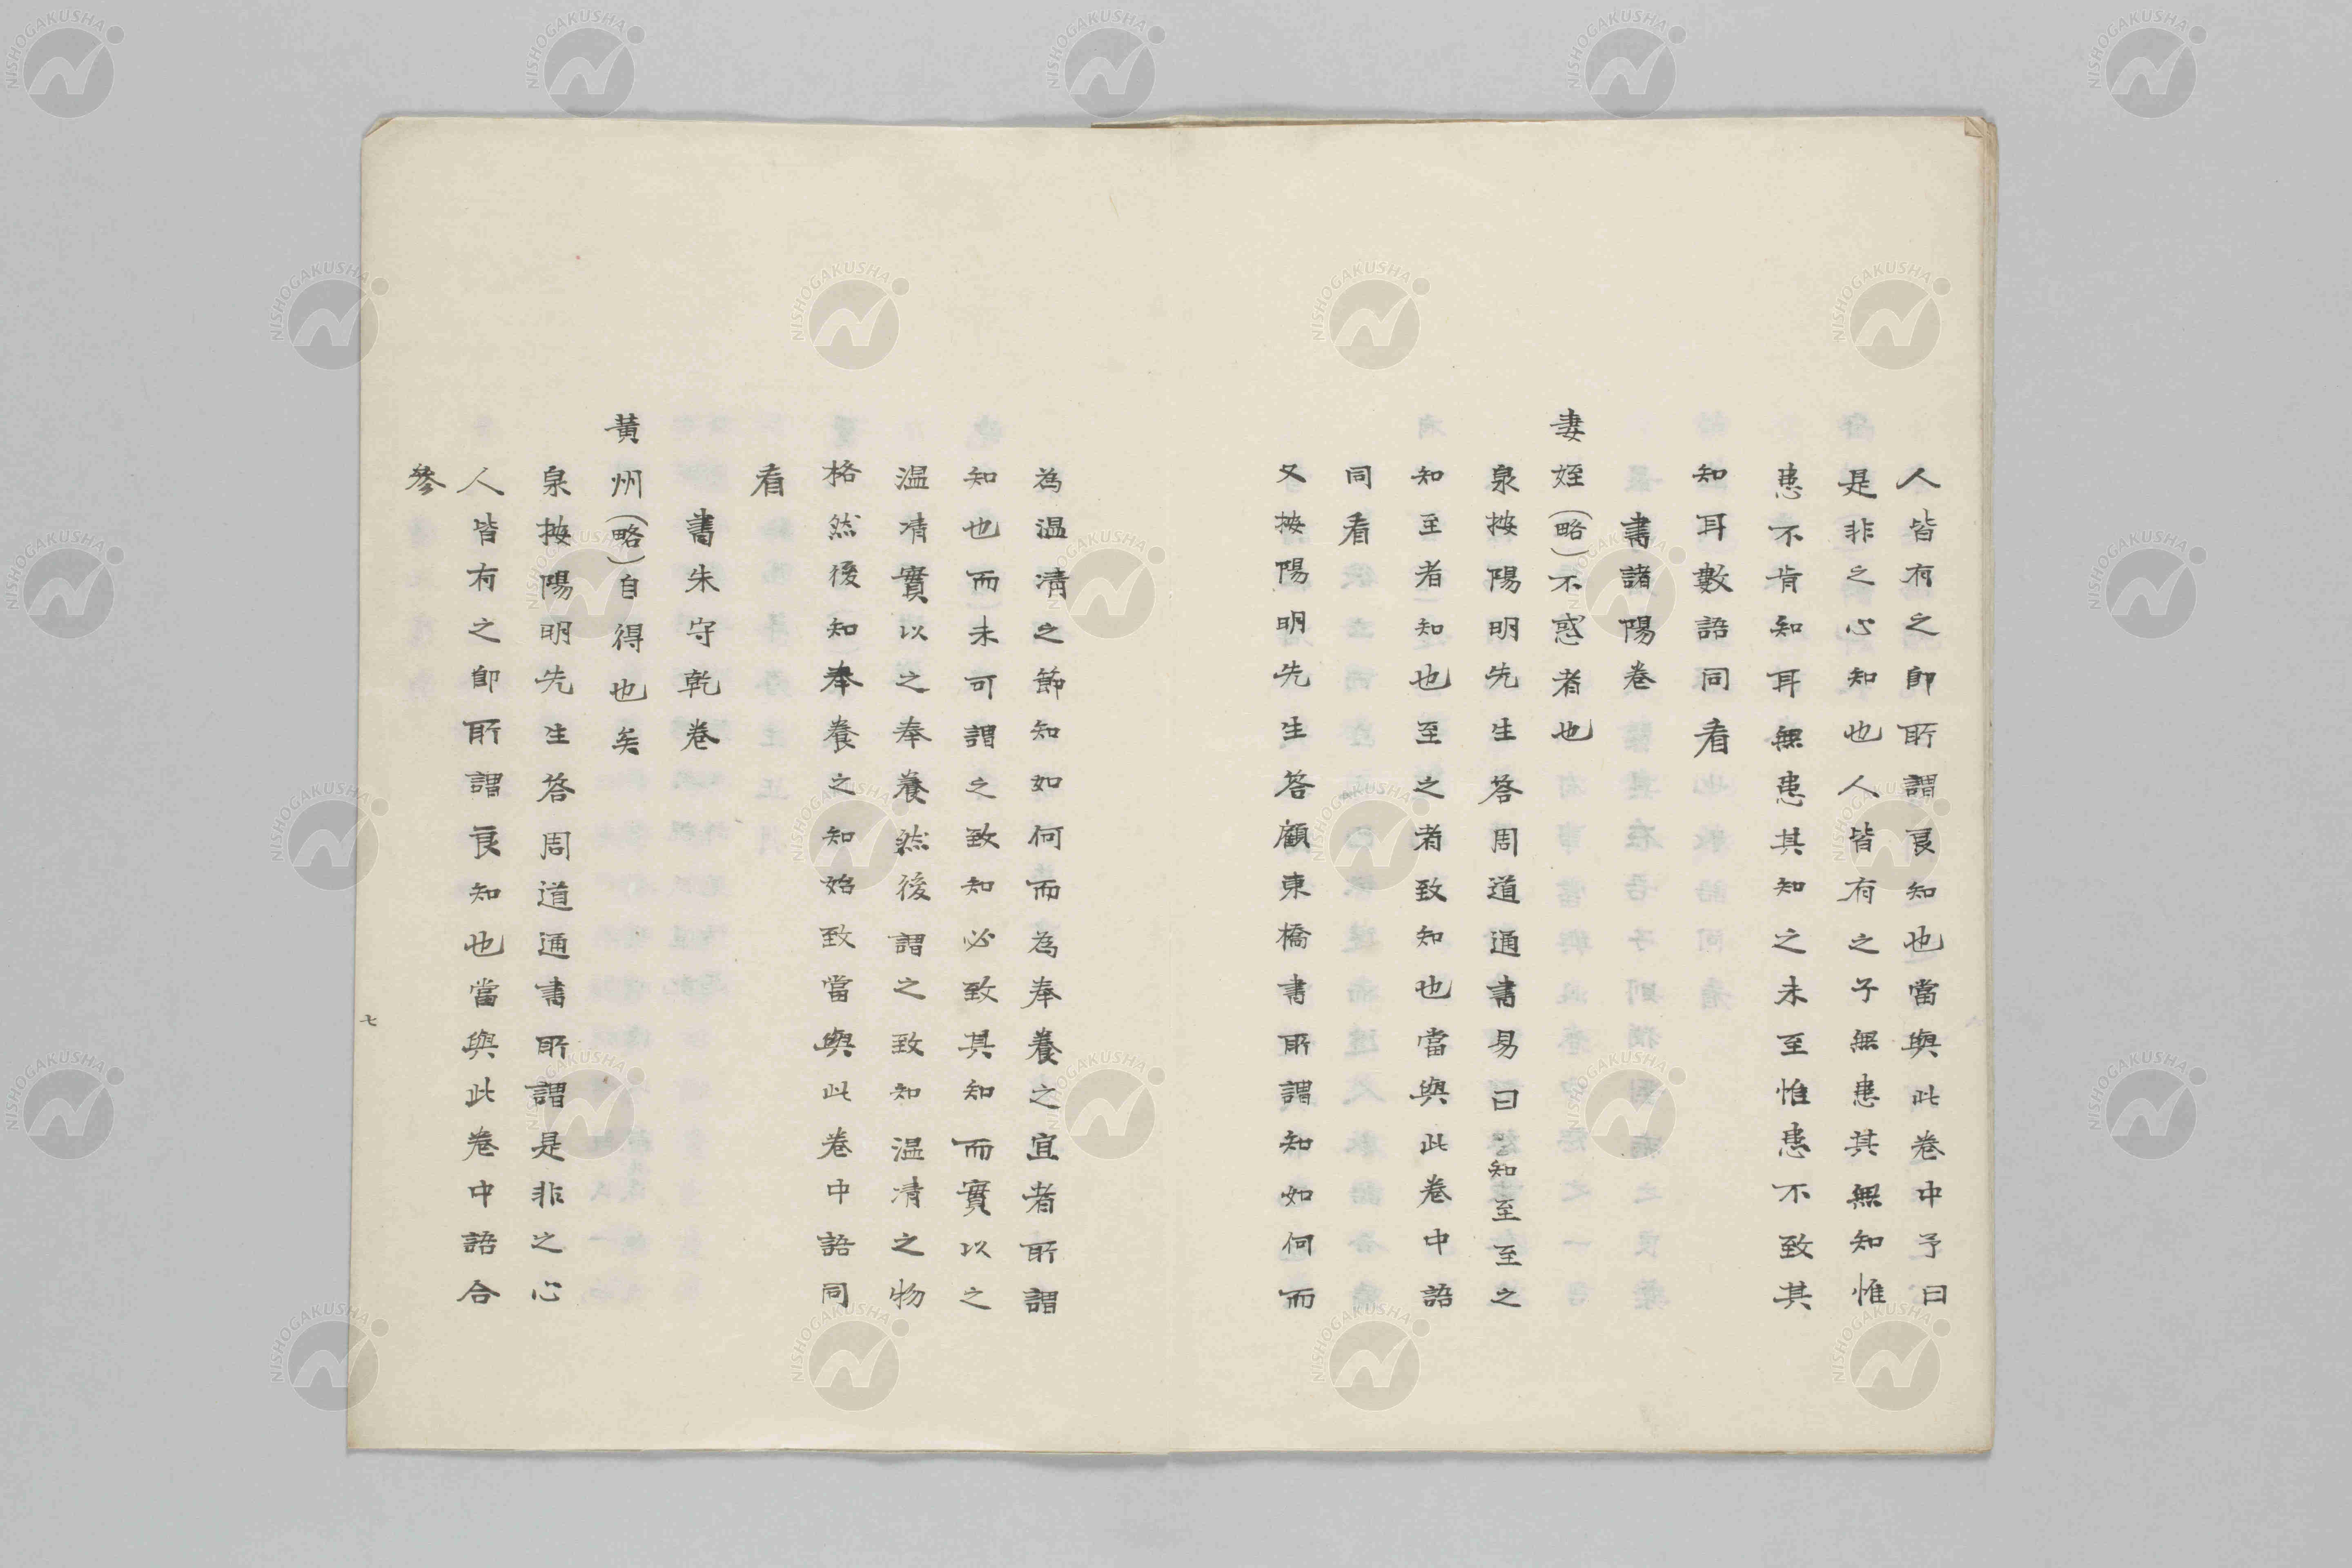 人皆有之卽所謂良知也當與此卷中予曰
是非之心知也人皆有之子無患其無知惟
患不肯知耳無患其知之未至惟患不致其
知耳數語同看
書諸陽卷
妻姪(略)不惑者也
泉按陽明先生答周道通書易曰知至至之
知至者知也至之者致知也當與此卷中語
同看
又按陽明先生答顧東橋書所謂知如何而
為温凊之節知如何而為奉養之宜者所謂
知也而未可謂之致知必致其知而實以之
温凊實以之奉養然後謂之致知温凊之物
格然後知奉養之知始致當與此卷中語同
看
書朱守乾卷
黄州(略)自得也矣
泉按陽明先生答周道通書所謂是非之心
人皆有之卽所謂良知也當與此卷中語合
參
七
NISHOGAKUSHA